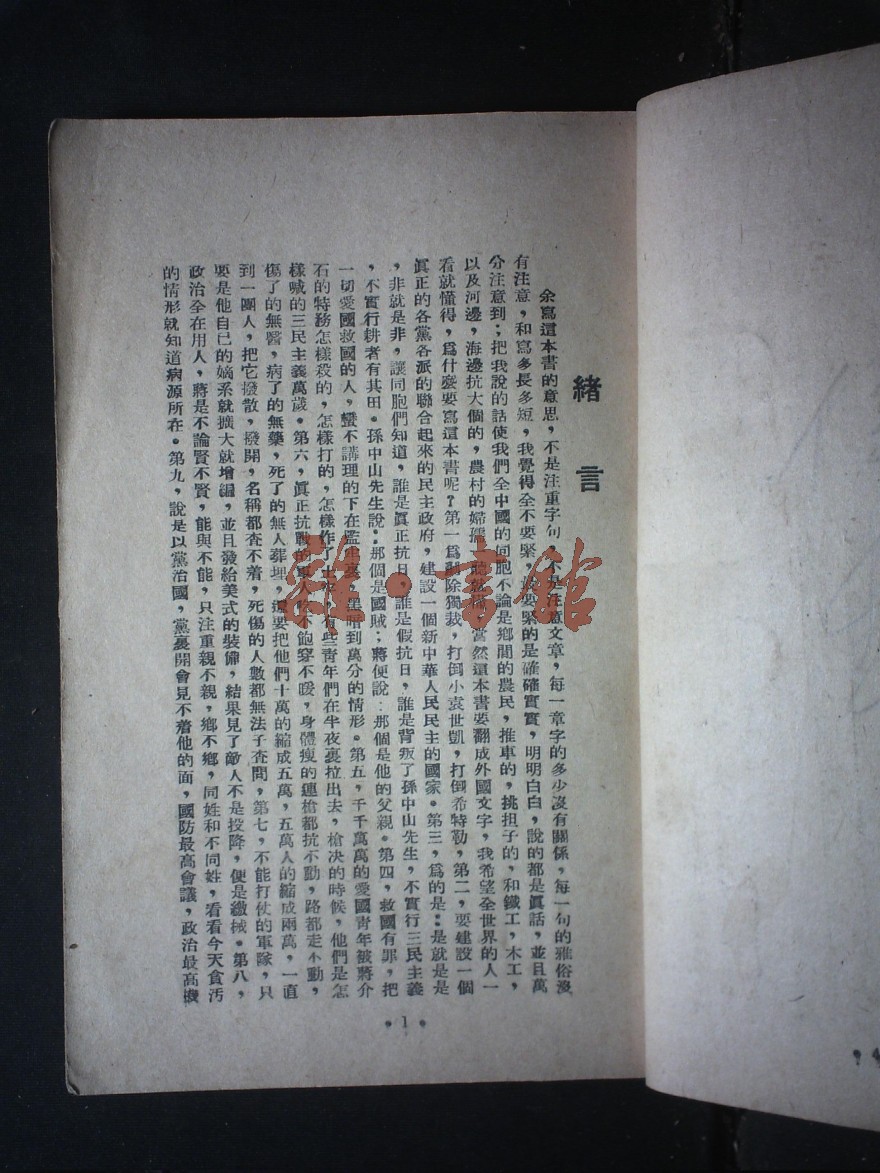 緒言
余寫這本書的意思，不是注重字句，不是注意文章，每一章字的多少沒有關係，每一句的雅俗沒
有注意，和寫多長多短，我覺得全不要緊，最要緊的是確確實實，明明白白，說的都是眞話，並且萬
分注意到；把我說的話使我們全中國的同胞不論是鄉間的農民，推車的，挑担子的，和鐵工，木工，
以及河邊，海邊抗大個的，農村的婦孺，一聽就懂，當然這本書要翻成外國文字，我希望全世界的人一
看就懂得，爲什麼要寫這本書呢？第一爲剷除獨裁，打倒小袁世凱，打倒希特勒，第二，要建設一個
眞正的各黨各派的聯合起來的民主政府，建設一個新中華人民民主的國家。第三，爲的是：是就是是
，非就是非，讓同胞們知道，誰是眞正抗日，誰是假抗日，誰是背叛了孫中山先生，不實行三民主義
，不實行耕者有其田。孫中山先生說：那個是國賊；蔣便說：那個是他的父親。第四，救國有罪，把
一切愛國救國的人，蠻不講理的下在監牢裏，黑暗到萬分的情形。第五，千千萬萬的愛國青年被蔣介
石的特務怎樣殺的，怎樣打的，怎樣作了土 有些青年們在半夜裏拉出去，槍决的時候，他們是怎
樣喊的三民主義萬歲。第六，眞正抗戰的軍人吃不飽穿不暖，身體瘦的連槍都抗不動，路都走不動，
傷了的無醫，病了的無藥，死了的無人葬埋，還要把他們十萬的縮成五萬，五萬人的縮成兩萬，一直
到一團人，把它撥散，撥開，名稱都查不着，死傷的人數都無法子查問，第七，不能打仗的軍隊，只
要是他自已的嫡系就擴大就增編，並且發給美式的裝備，結果見了敵人不是投降，便是繳械。第八，
政治全在用人，蔣是不論賢不賢，能與不能，只注重親不親，鄉不鄉，同姓和不同姓，看看今天貪汚
的情形就知道病源所在。第九，說是以黨治國，黨裏開會見不着他的面，國防最高會議，政治最高機
•1•
雜·書館